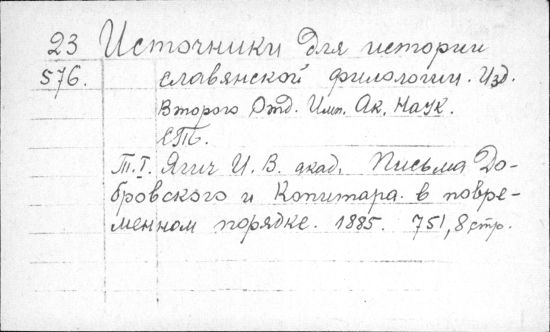 23 Источники для истории
576. славянской филологии. Изд.
Второго Отд. Имп. Ак. Наук.
СПб.
Т. I. Ягич И. В. акад. Письма До-
бровского и Копитара. в повре-
менном порядке. 1885. 751, 8 стр.